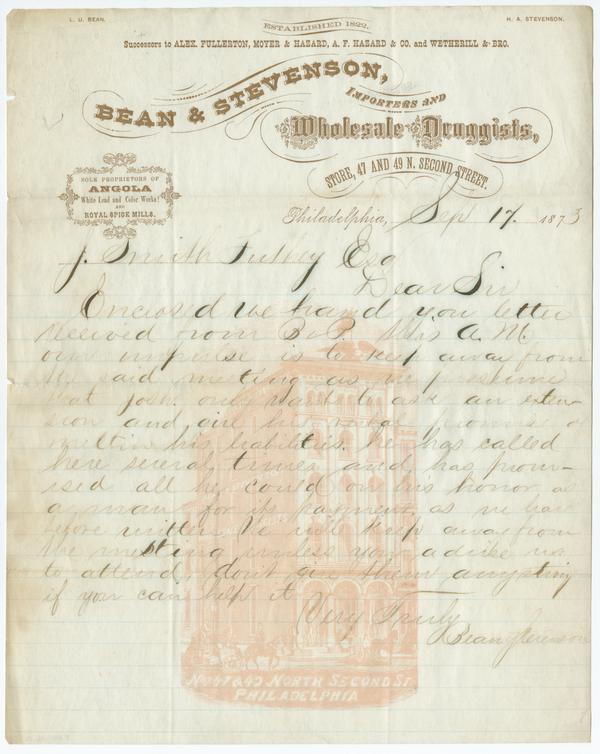 L. U. BEAN.
ESTABLISHED 1822.
H. A. STEVENSON.
Successors to ALEX. FULLERTON, MOYER & HAZARD, A. F. HAZARD & CO. and WETHERILL & BRO.
BEAN & STEVENSON,
IMPORTERS AND
Wholesale Druggists,
STORE, 47 AND 49 N. SECOND STREET.
SOLE PROPRIETORS OF
ANGOLA
White Lead and Color Works!
AND
ROYAL SPICE MILLS.
Philadelphia, Sep 17. 1873
J. Smith Futhey Esq
Dear Sir
Enclosed we hand you letter
received from this A. M.
our impulse is to keep away from
the said meeting as we presume
that josh. only wants to ask an exten-
sion and give his verbal promise of
meeting his liabilities. he has called
here several times and has prom-
ised all he could on his honor as
a man for its payment, as we have
before written. We will keep away from
the meeting unless you advise us
to attend, don't give them anything
if you can help it
Very Truly
Bean & Stevenson
No 47 & 49 NORTH SECOND ST
PHILADELPHIA